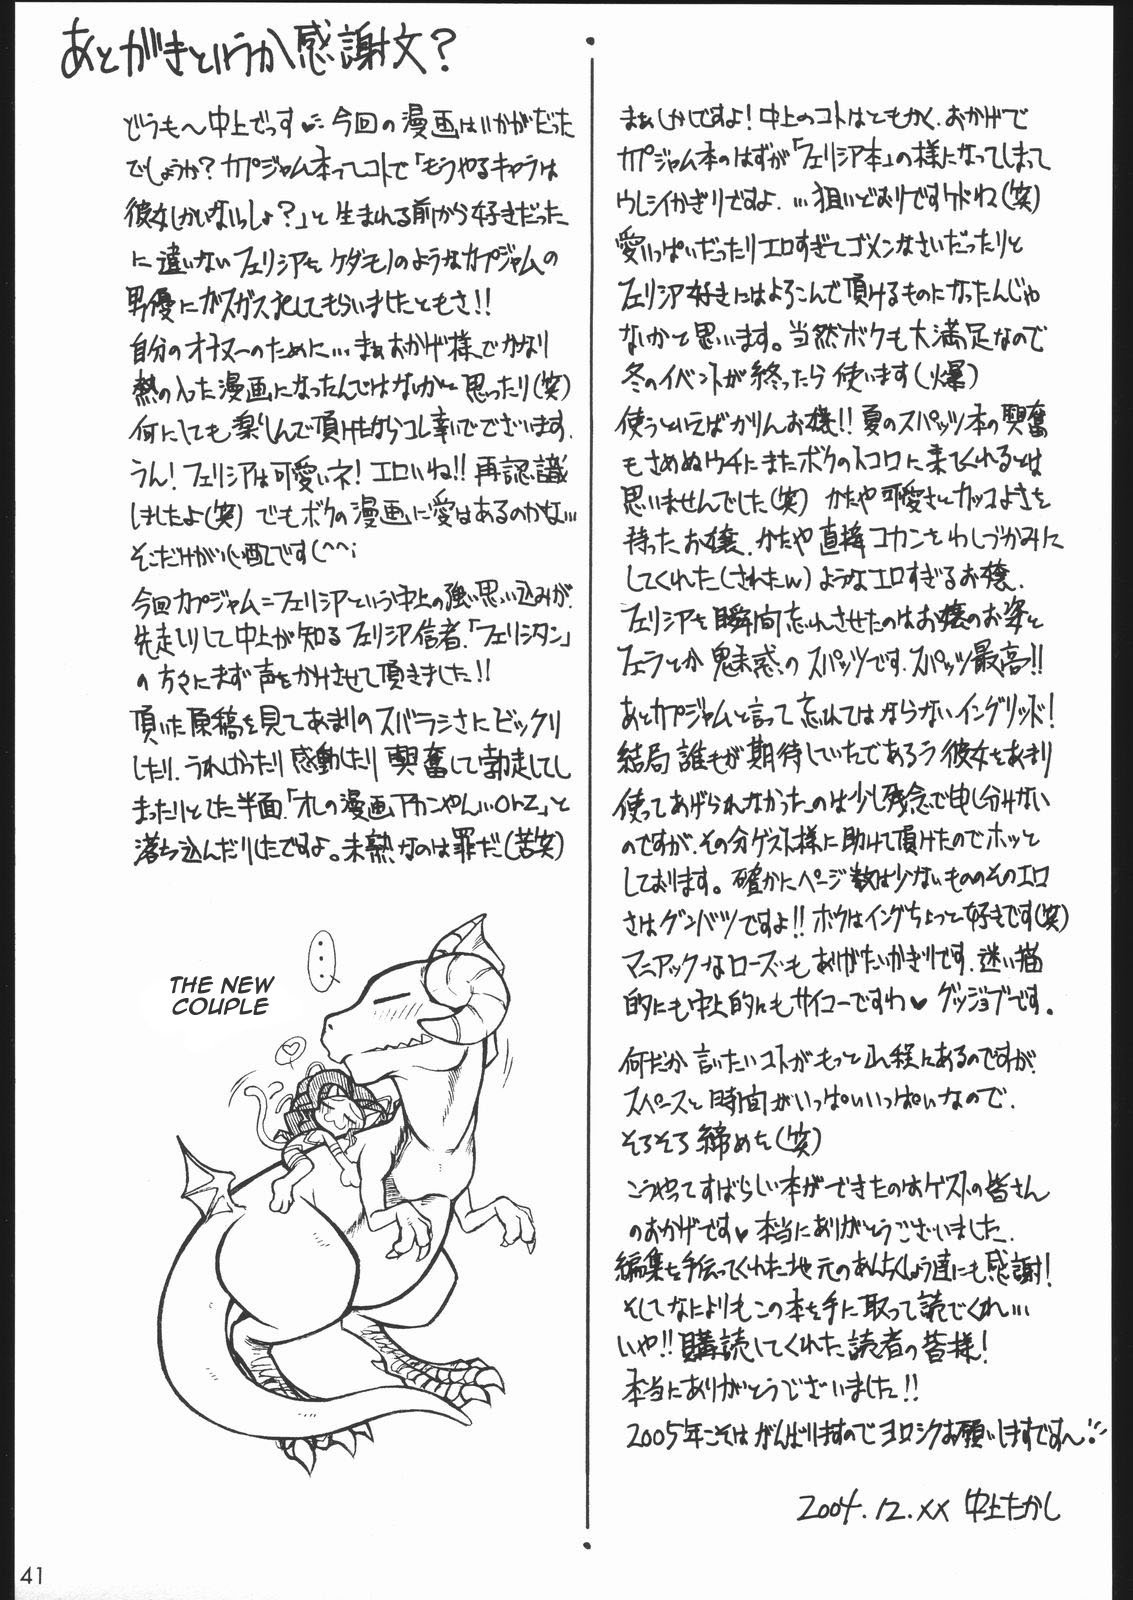 あとがきというか感謝文?
どうも～中上でっす♥ 今回の漫画はいかがだった
でしょうか?カプジャム本ってコトで「もうやるキャラは
彼女しかいないっしょ?」と生まれる前から好きだった
に違いないフェリシアをケダモノのようなカプジャムの
男優にガスガス犯してもらいましたともさ!!
自分のオナヌーのために…まぁおかげ様でかなり
熱の入った漫画になったんではないかと思ったり(笑)
何にしても楽しんで頂けたならコレ幸いでございます.
うん!フェリシアは可愛いネ!エロいね!!再認識
しましたよ(笑)でもボクの漫画に愛はあるのかな…
そこだけが心配です(^^;
今回カプジャム=フェリシアという中上の強い思い込みが
先走りして中上が知るフェリシア信者.「フェリシタン」
の方々にまず声をかけさせて頂きました!!
頂いた原稿を見てあまりのスバラシさにビックリ
したり.うれしかったり感動したり興奮して勃走してし
まったりとした半面.「オレの漫画アカンやん…orz」と
落ち込んだりしたですよ。未熟なのは罪だ(苦笑)
THE NEW
COUPLE
41
まぁしかしですよ!中上のコトはともかく.おかげで
カプジャム本のはずが「フェリシア本」の様になってしまって
ウレシイかぎりですよ.…狙いどおりですケドね(笑)
愛いっぱいだったりエロすぎてゴメンなさいだったりと
フェリシア好きにはよろこんで頂けるものになったんじゃ
ないかと思います。当然ボクも大満足なので
冬のイベントが終ったら使います(爆)
使うといえばかりんお嬢!!夏のスパッツ本の興奮
もさめぬウチにまたボクのトコロに来てくれるとは
思いませんでした(笑) かたや可愛さとカッコよさを
持ったお嬢.かたや直接コカンをわしづかみに
してくれた(されたw)ようなエロすぎるお嬢.
フェリシアを瞬間忘れさせたのはお嬢のお姿と
フェラとか魅惑のスパッツです.スパッツ最高!!
あとカプジャムと言って忘れてはならないイングリッド!
結局誰もが期待していたであろう彼女をあまり
使ってあげられなかったのは少し残念で申し分けない
のですが.その分ゲスト様に助けて頂けたのでホッと
しております。確かにページ数は少ないもののそのエロ
さはグンバツですよ!!ボクはイングちょっと好きです(笑)
マニアックなローズもありがたいかぎりです.迷い猫
的にも中上的にもサイコーですわ♥ グッジョブです。
何だか言いたいコトがもっと山程にあるのですが
スペースと時間がいっぱいいっぱいなので.
そろそろ締めを(笑)
こうやってすばらしい本ができたのはゲストの皆さん
のおかげです♥ 本当にありがとうございました.
編集を手伝ってくれた地元のあんちくしょう達にも感謝!
そしてなによりもこの本を手に取って読でくれ…
いや!!購読してくれた読者の皆様!
本当にありがとうございました!!
2005年こそはがんばりますのでヨロシクお願いしますです～!!
2004.12.XX 中上たかし